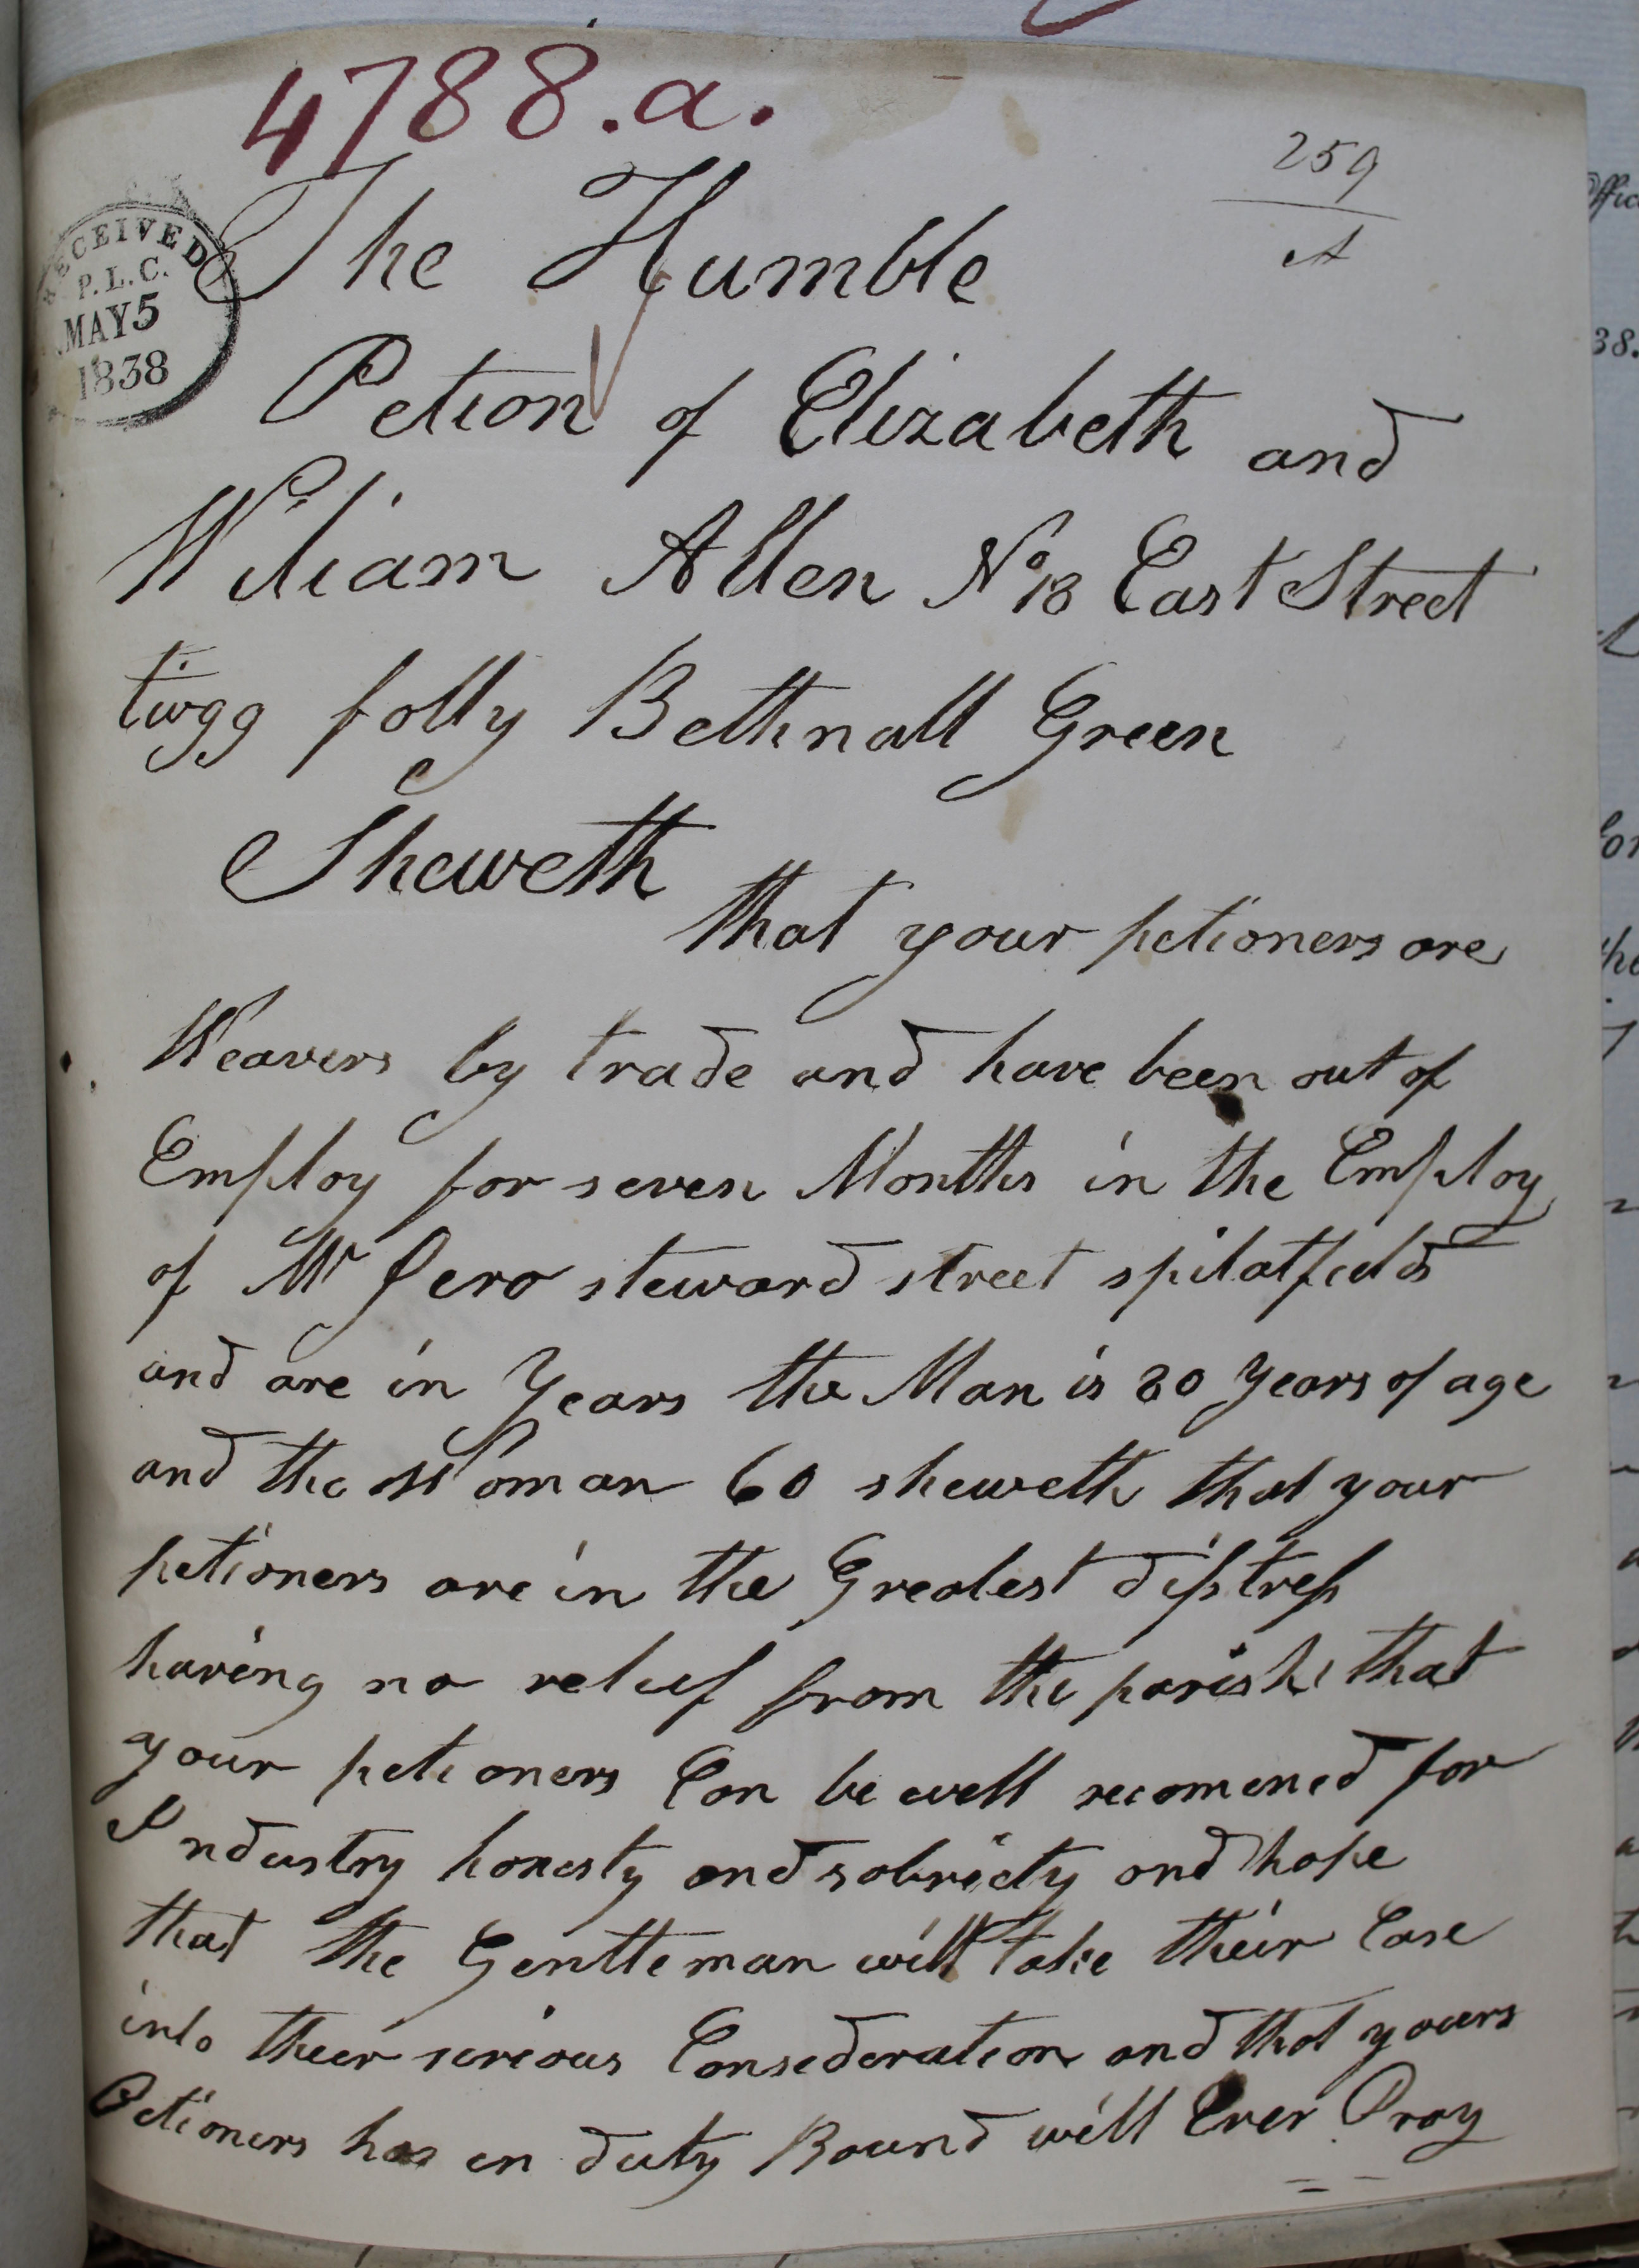 4788.a.
259
A
RECEIVED
P.L.C.
MAY 5
1838
The Humble
Petion of Elizabeth and
Wiliam Allen No 18 East Street
twigg folly Bethnall Green
Sheweth
that your petioners are
Weavers by trade and have been out of
Employ for seven Months in the Employ
of Mr Pero steward street spilatfields
and are in Years the Man is 80 Years of age
and the Woman 60 sheweth that your
petioners are in the Greatest disstress
having no relief from the parish that
your petioners Can be well recomened for
Industry honesty and sobriety and hope
that the Gentleman will take their Case
into their serious Consederation and that yours
Petioners has en duty Bound will Ever Pray